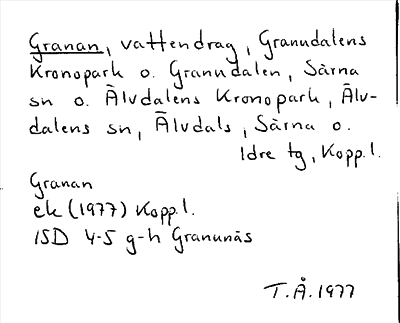 Granan, vattendrag, Granudalens
Kronopark o. Granudalen, Särna
sn o. Älvdalens Kronopark, Älv-
dalens sn, Älvdals, Särna o.
Idre tg, Kopp. l.
Granan
ek (1977) Kopp. l.
ISD 4-5 g-h Granunäs
T.Å. 1977